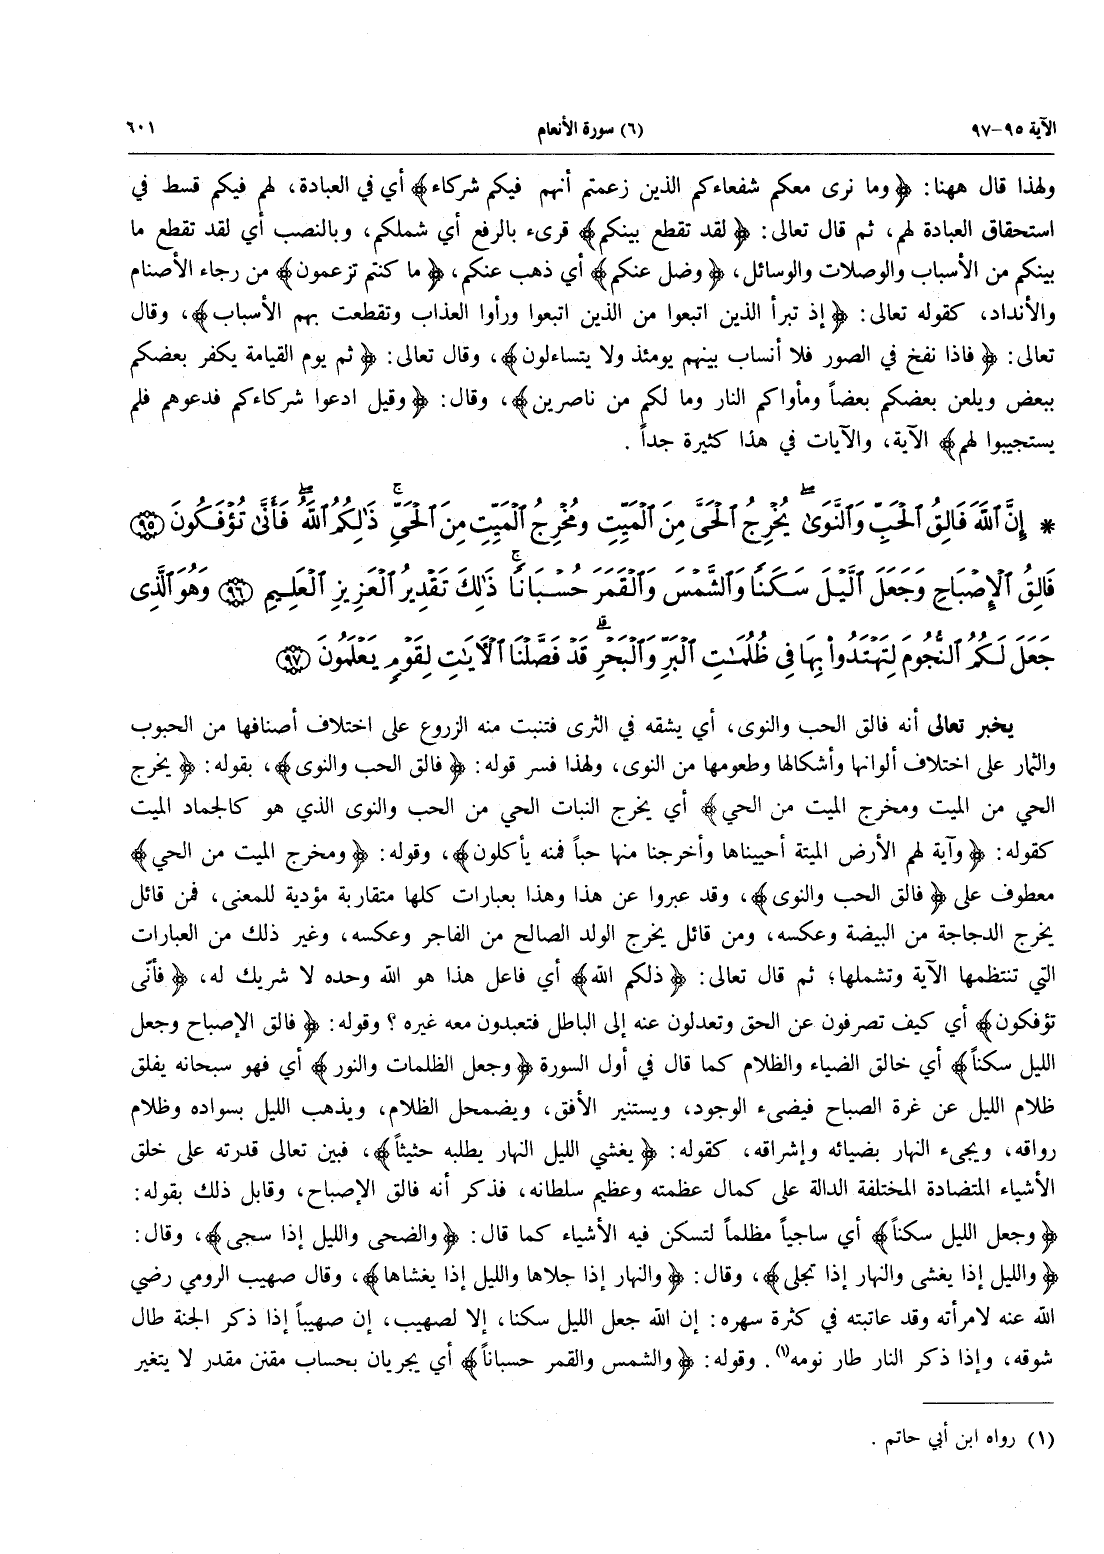 الآية ٩٥-٩٧
(٦) سورة الأنعام
٦٠١
ولهذا قال ههنا: ﴿وما نرى معكم شفعاءكم الذين زعمتم أنهم فيكم شركاء﴾ أي في العبادة، لهم فيكم قسط في
استحقاق العبادة لهم، ثم قال تعالى: ﴿لقد تقطع بينكم﴾ قرىء بالرفع أي شملكم، وبالنصب أي لقد تقطع ما
بينكم من الأسباب والوصلات والوسائل، ﴿وضل عنكم﴾ أي ذهب عنكم، ﴿ما كنتم تزعمون﴾ من رجاء الأصنام
والأنداد، كقوله تعالى: ﴿إذ تبرأ الذين اتبعوا من الذين اتبعوا ورأوا العذاب وتقطعت بهم الأسباب﴾، وقال
تعالى: ﴿فاذا نفخ في الصور فلا أنساب بينهم يومئذ ولا يتساءلون﴾، وقال تعالى: ﴿ثم يوم القيامة يكفر بعضكم
ببعض ويلعن بعضكم بعضاً ومأواكم النار وما لكم من ناصرين﴾، وقال: ﴿وقيل ادعوا شركاءكم فدعوهم فلم
يستجيبوا لهم﴾ الآية، والآيات في هذا كثيرة جداً.
* إِنَّ ٱللَّهَ فَالِقُ ٱلْحَبِّ وَٱلنَّوَىٰ ۖ يُخْرِجُ ٱلْحَىَّ مِنَ ٱلْمَيِّتِ وَمُخْرِجُ ٱلْمَيِّتِ مِنَ ٱلْحَىِّ ۚ ذَٰلِكُمُ ٱللَّهُ ۖ فَأَنَّىٰ تُؤْفَكُونَ ﴿٩٥﴾
فَالِقُ ٱلْإِصْبَاحِ وَجَعَلَ ٱلَّيْلَ سَكَنًا وَٱلشَّمْسَ وَٱلْقَمَرَ حُسْبَانًا ۚ ذَٰلِكَ تَقْدِيرُ ٱلْعَزِيزِ ٱلْعَلِيمِ ﴿٩٦﴾ وَهُوَ ٱلَّذِى
جَعَلَ لَكُمُ ٱلنُّجُومَ لِتَهْتَدُوا۟ بِهَا فِى ظُلُمَٰتِ ٱلْبَرِّ وَٱلْبَحْرِ ۗ قَدْ فَصَّلْنَا ٱلْآيَٰتِ لِقَوْمٍ يَعْلَمُونَ ﴿٩٧﴾
يخبر تعالى أنه فالق الحب والنوى، أي يشقه في الثرى فتنبت منه الزروع على اختلاف أصنافها من الحبوب
والثمار على اختلاف ألوانها وأشكالها وطعومها من النوى، ولهذا فسر قوله: ﴿فالق الحب والنوى﴾، بقوله: ﴿يخرج
الحي من الميت ومخرج الميت من الحي﴾ أي يخرج النبات الحي من الحب والنوى الذي هو كالجماد الميت
كقوله: ﴿وآية لهم الأرض الميتة أحييناها وأخرجنا منها حباً فمنه يأكلون﴾، وقوله: ﴿ومخرج الميت من الحي﴾
معطوف على ﴿فالق الحب والنوى﴾، وقد عبروا عن هذا وهذا بعبارات كلها متقاربة مؤدية للمعنى، فمن قائل
يخرج الدجاجة من البيضة وعكسه، ومن قائل يخرج الولد الصالح من الفاجر وعكسه، وغير ذلك من العبارات
التي تنتظمها الآية وتشملها؛ ثم قال تعالى: ﴿ذلكم الله﴾ أي فاعل هذا هو الله وحده لا شريك له، ﴿فأنّى
تؤفكون﴾ أي كيف تصرفون عن الحق وتعدلون عنه إلى الباطل فتعبدون معه غيره؟ وقوله: ﴿فالق الإصباح وجعل
الليل سكناً﴾ أي خالق الضياء والظلام كما قال في أول السورة ﴿وجعل الظلمات والنور﴾ أي فهو سبحانه يفلق
ظلام الليل عن غرة الصباح فيضىء الوجود، ويستنير الأفق، ويضمحل الظلام، ويذهب الليل بسواده وظلام
رواقه، ويجىء النهار بضيائه وإشراقه، كقوله: ﴿يغشي الليل النهار يطلبه حثيثاً﴾، فبين تعالى قدرته على خلق
الأشياء المتضادة المختلفة الدالة على كمال عظمته وعظيم سلطانه، فذكر أنه فالق الإصباح، وقابل ذلك بقوله:
﴿وجعل الليل سكناً﴾ أي ساجياً مظلماً لتسكن فيه الأشياء كما قال: ﴿والضحى والليل إذا سجى﴾، وقال:
﴿والليل إذا يغشى والنهار إذا تجلى﴾، وقال: ﴿والنهار إذا جلاها والليل إذا يغشاها﴾، وقال صهيب الرومي رضي
الله عنه لامرأته وقد عاتبته في كثرة سهره: إن الله جعل الليل سكنا، إلا لصهيب، إن صهيباً إذا ذكر الجنة طال
شوقه، وإذا ذكر النار طار نومه(١). وقوله: ﴿والشمس والقمر حسباناً﴾ أي يجريان بحساب مقنن مقدر لا يتغير
(١) رواه ابن أبي حاتم.